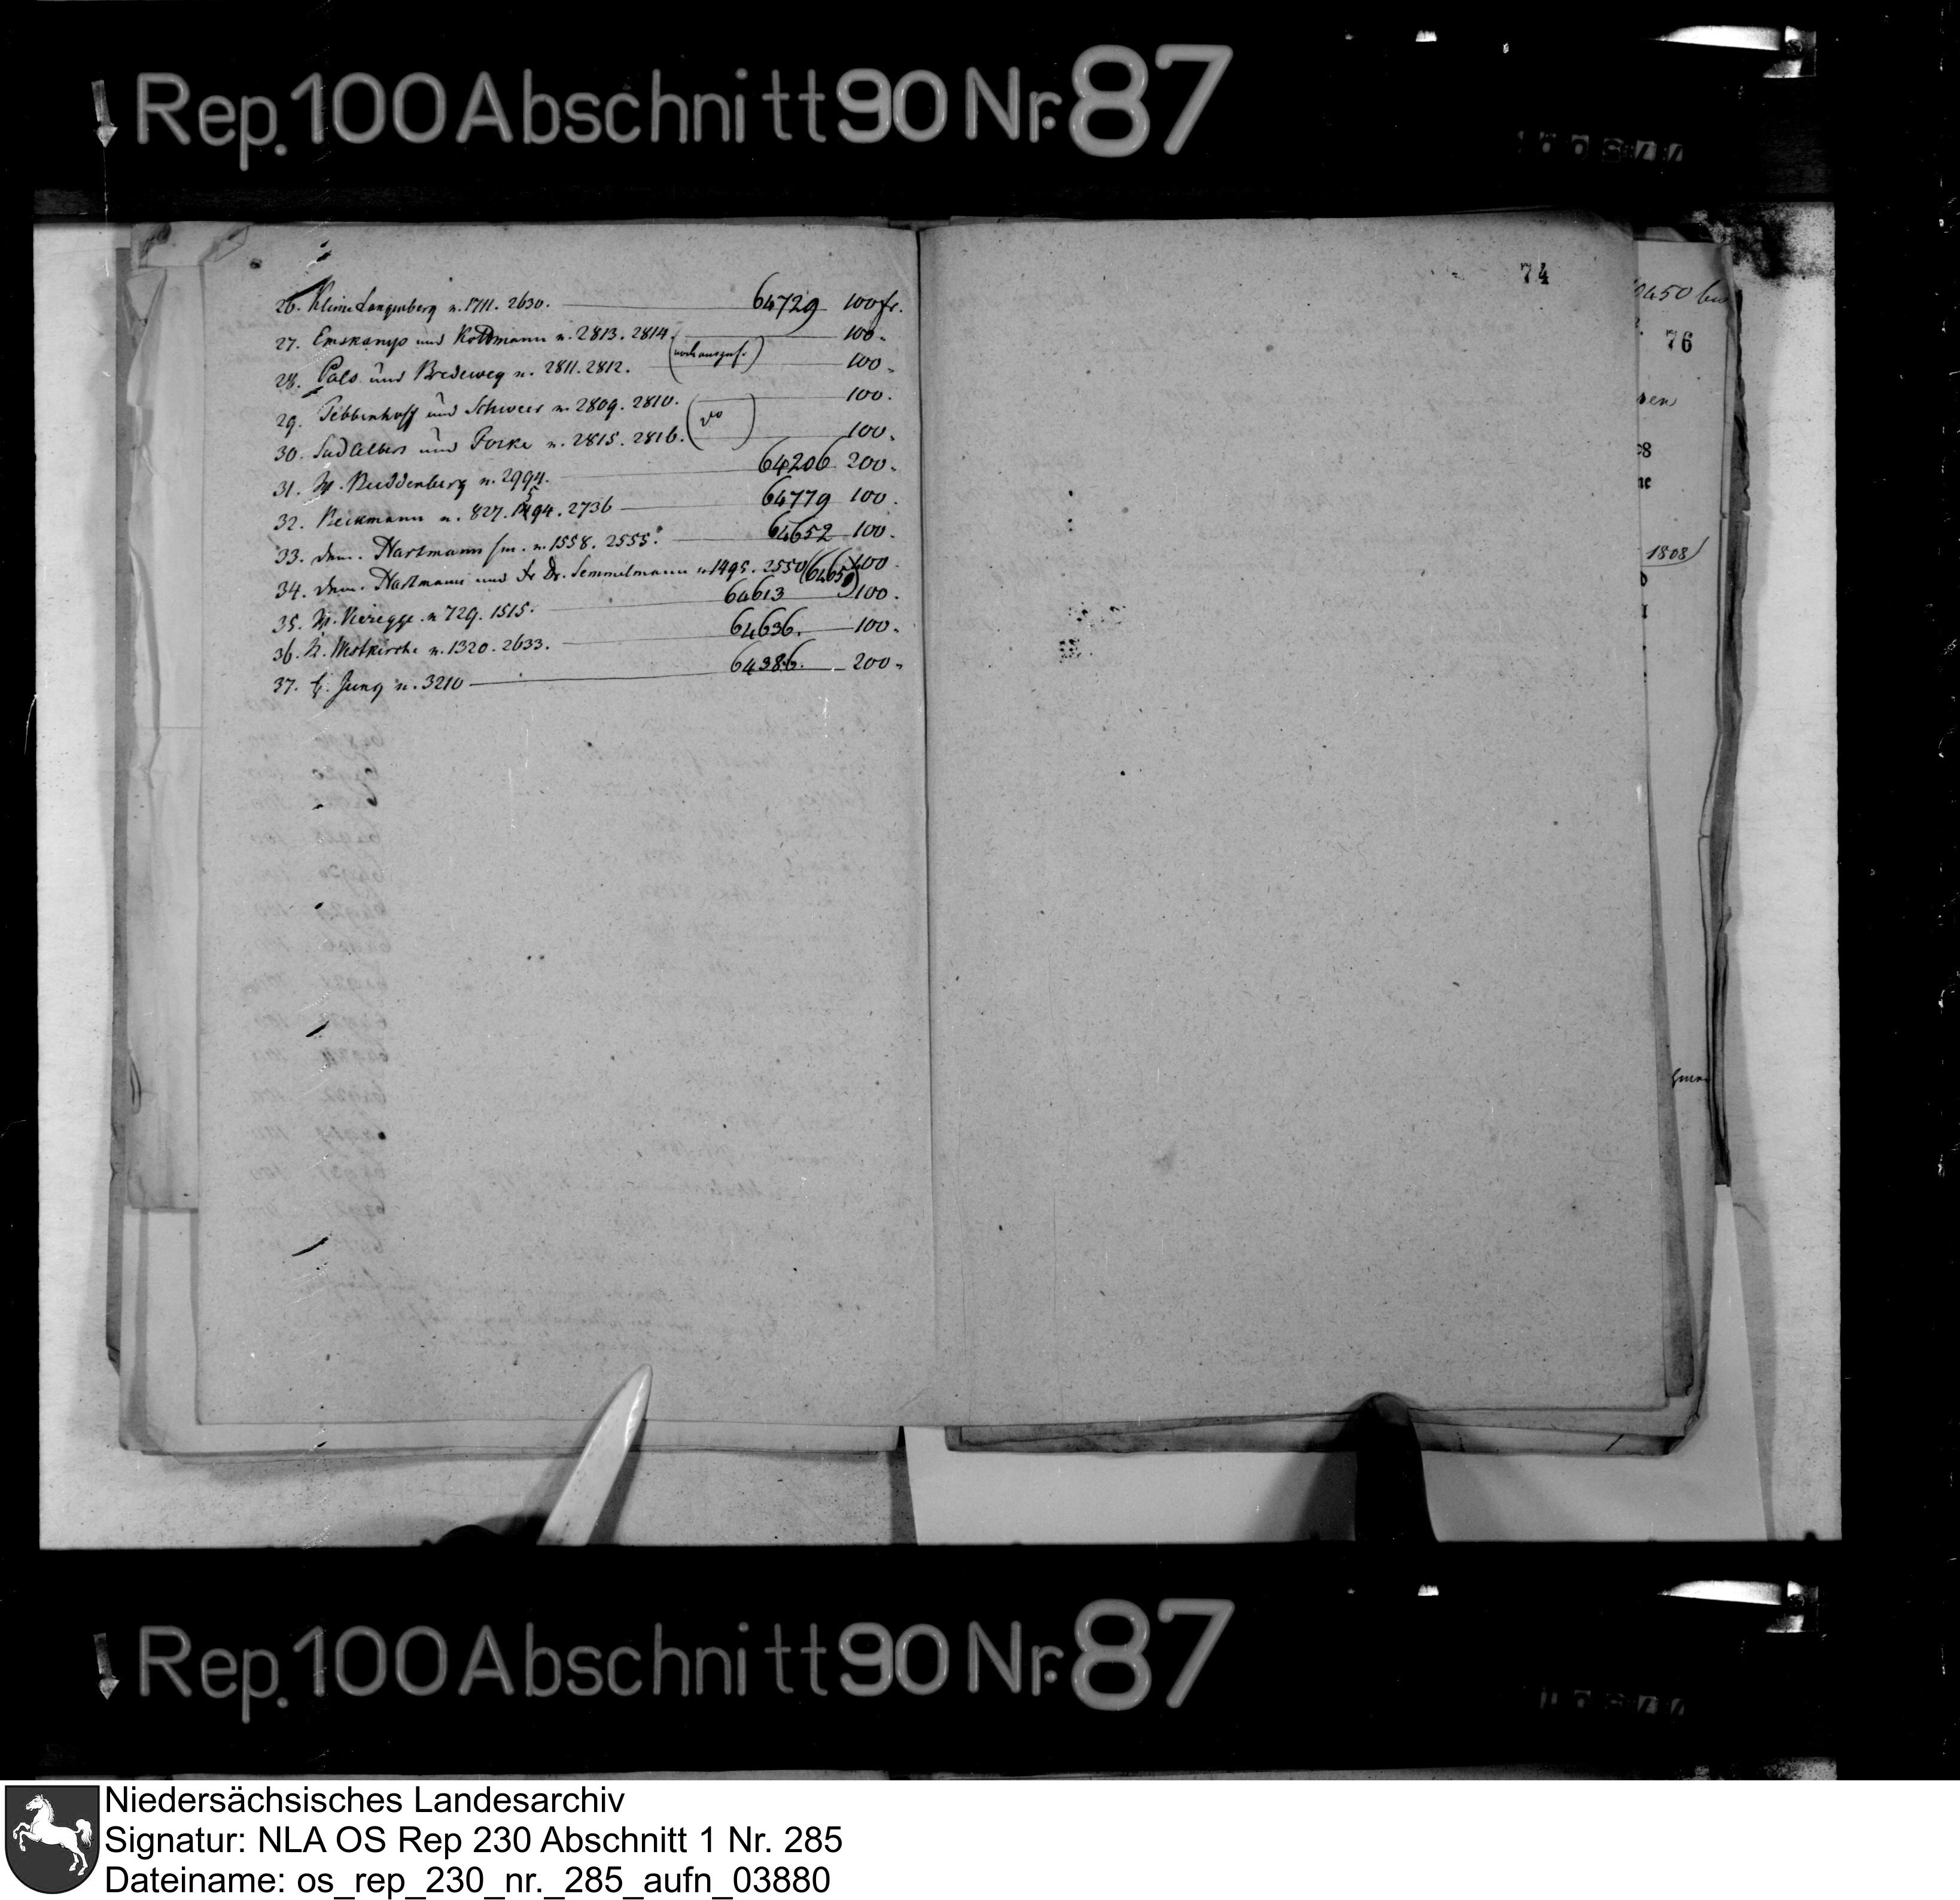 Rep. 100 Abschnitt 90 Nr. 87
74
26. Kleine Langenberg n. 1711. 2630. 64729 100 fr.
27. Emskamp und Kottmann n. 2813. 2814. 100.
28. Pals und Bredeweg n. 2811. 2812. 100.
29. Tebbenhoff und Schweer n. 2809. 2810. 100.
30. Sudalbers und Focke n. 2815. 2816. do 100.
31. W. Buddenberg n. 2994. 64206 200.
32. Beckmann n. 827. 1594. 2736 64779 100.
33. dem. Hartmann sen. n. 1558. 2555. 64652 100.
34. dem. Hartmann und Dr. Semmelmann n. 1495. 2550 100.
35. W. Vieregge n. 729. 1515. 64613 100.
36. W. Westkirche n. 1320. 2633. 64636. 100.
37. Jung n. 3210 64386. 200.
76
1808
Rep. 100 Abschnitt 90 Nr. 87
Niedersächsisches Landesarchiv
Signatur: NLA OS Rep 230 Abschnitt 1 Nr. 285
Dateiname: os_rep_230_nr._285_aufn_03880